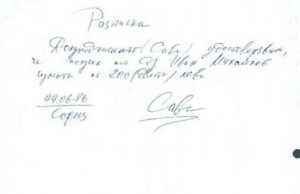 Разписка
Долуподписаният (Савов) удостоверявам,
че получих от Иван Михайлов
сумата от 200 (двеста) лева
09.06.96
София